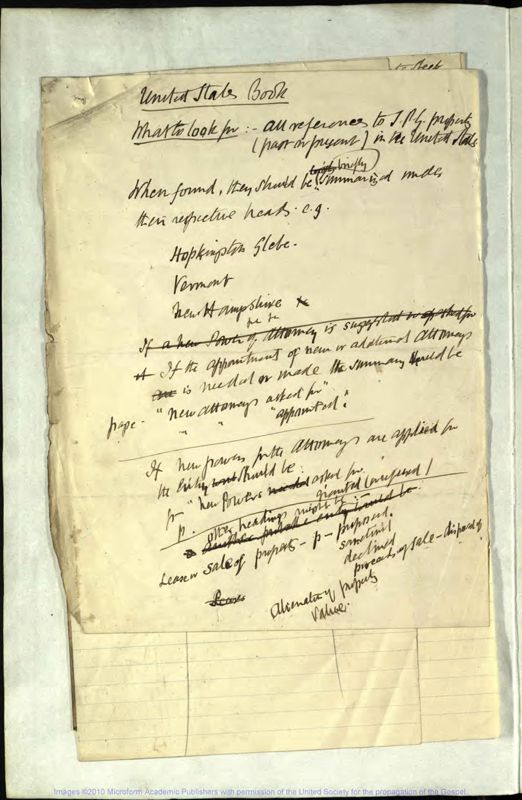 to Sheet
United States Book
What to look for :- all references to S.P.G. property
(past or present) in the United States
briefly
When found, they should be summarized under
their respective heads. e.g.
Hopkington Glebe.
Vermont
New Hampshire
If a new Power of Attorney is suggested or asked for
If the appointment of new or additional Attorneys
is needed or made the summary should be
page - "new attorneys asked for"
" " "appointed".
If new powers for the Attorneys are applied for
the entry should be
p - "new Powers needed asked for
p. granted (or refused)
other headings might be :-
another possible entry would be
Lease or Sale of property - p - proposed.
sanctioned
declined
proceeds of sale - disposal of
Leases
Alienation of property
Value.
Images ©2010 Microform Academic Publishers with permission of the United Society for the propagation of the Gospel.